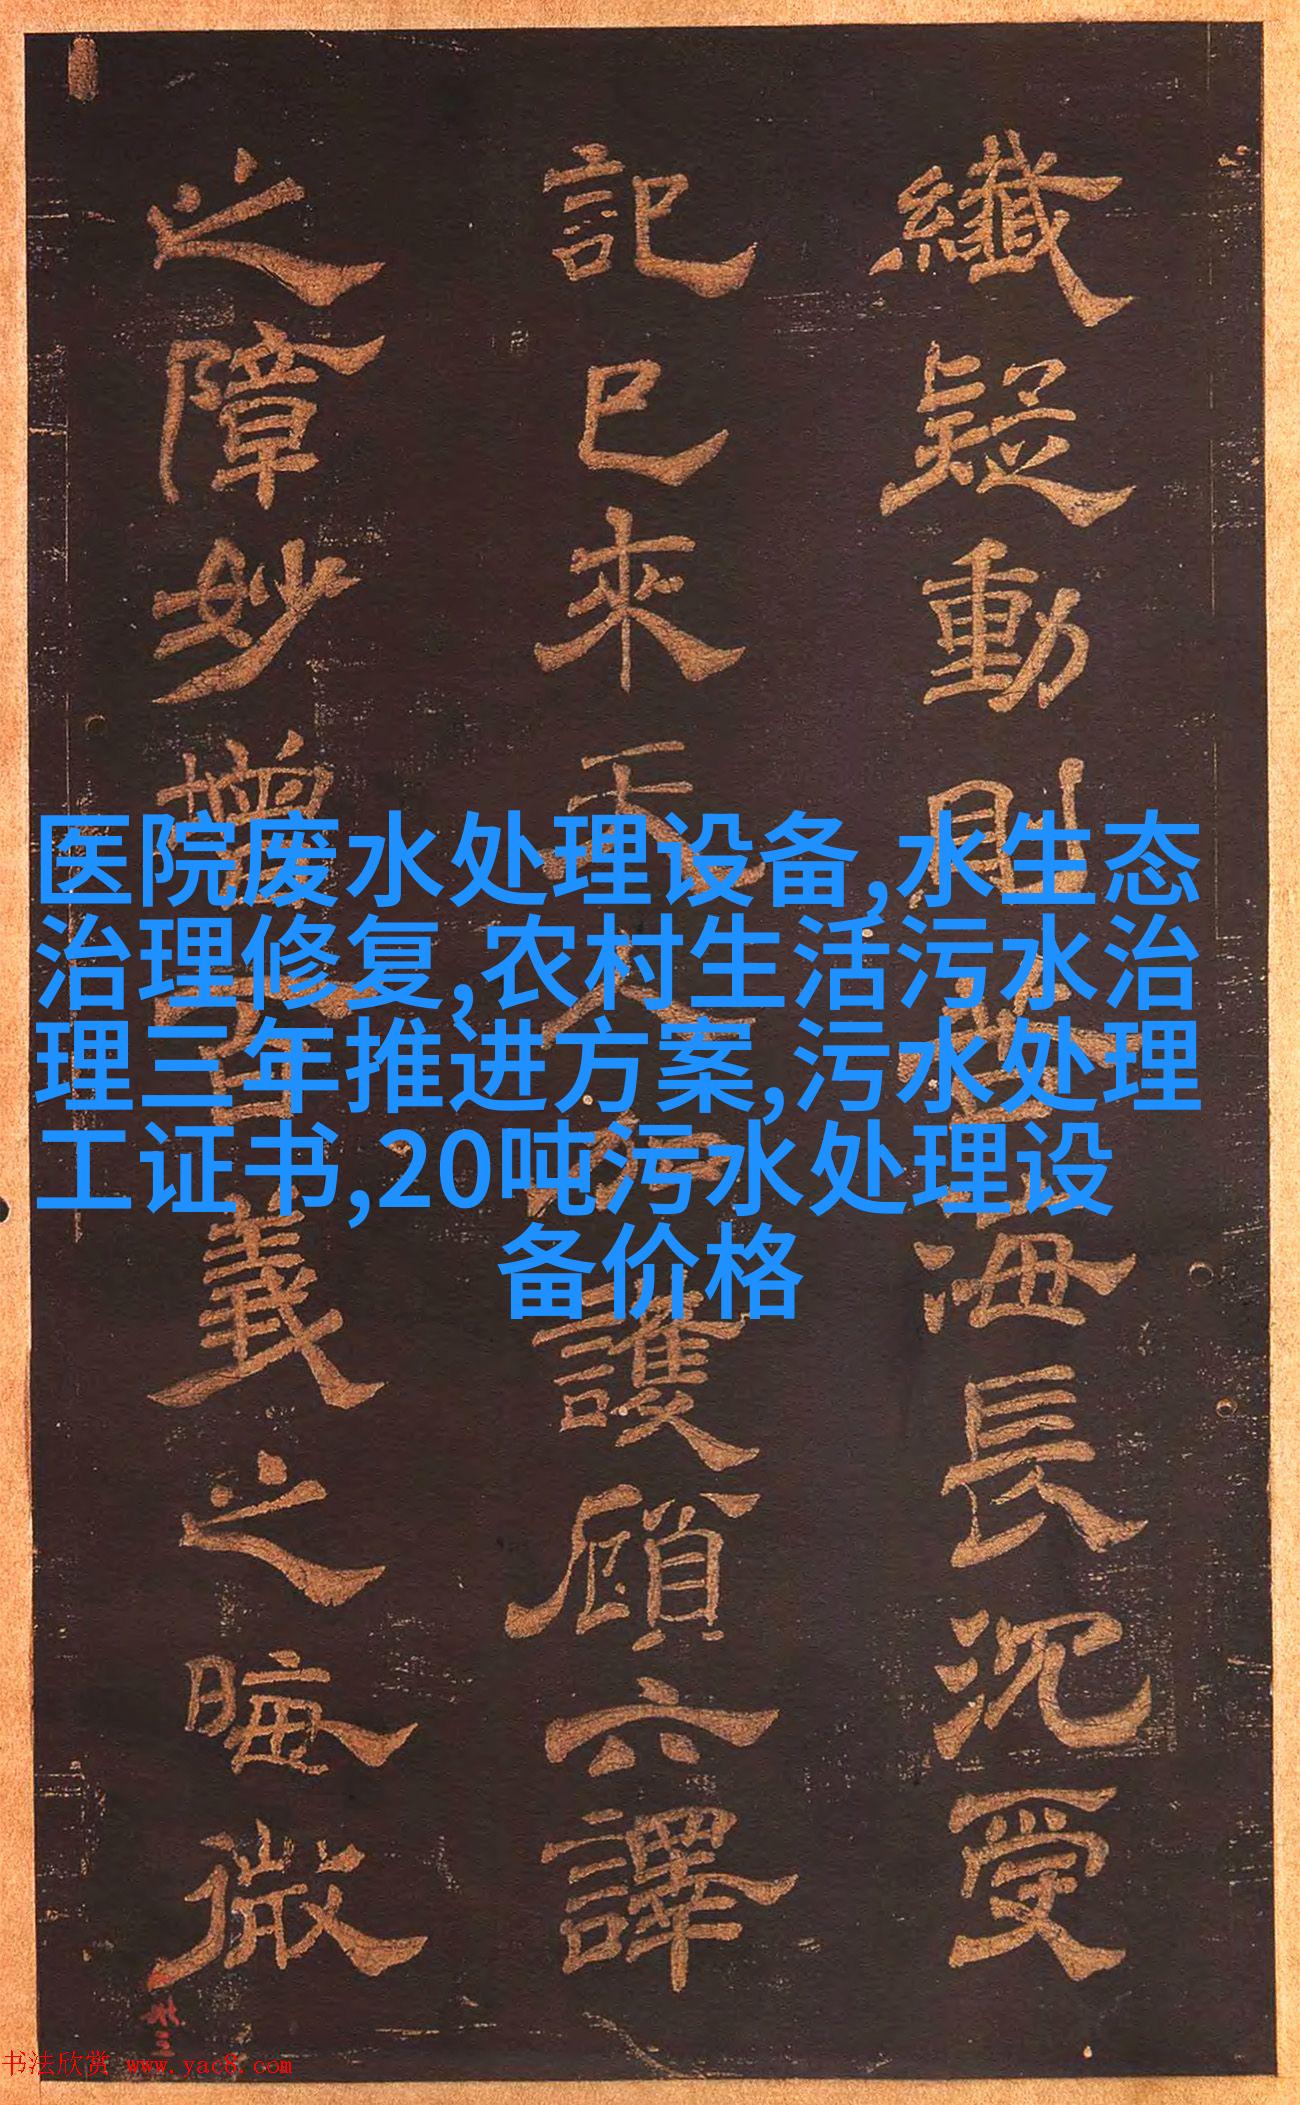 纖疑動則
海長沉受
記已來天人
護顧六譯
之障妙增
義之晦微
医院废水处理设备,水生态
治理修复,农村生活污水治
理三年推进方案,污水处理
工证书,20吨污水处理设
备价格
书法欣赏 www.yac8.com